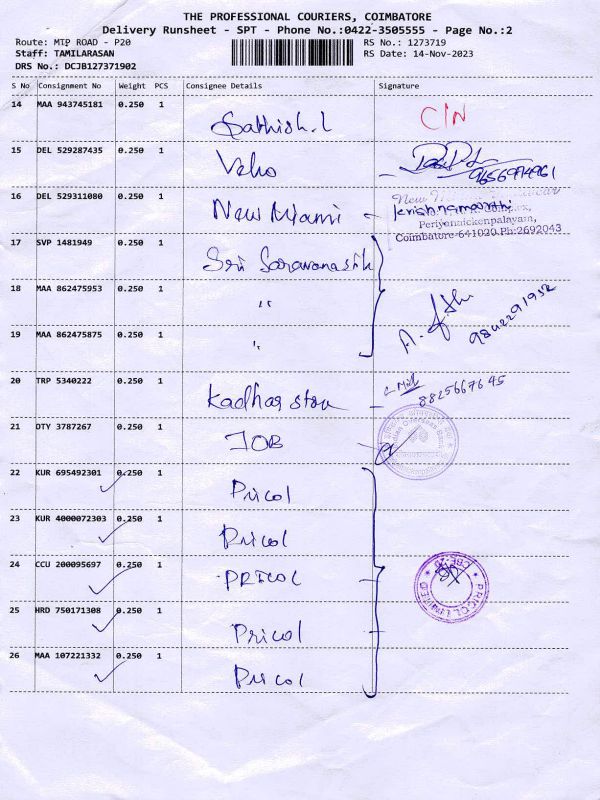 THE PROFESSIONAL COURIERS, COIMBATORE
Delivery Runsheet - SPT - Phone No.:0422-3505555 - Page No.:2
Route: MTP ROAD - P20
RS No.: 1273719
Staff: TAMILARASAN
RS Date: 14-Nov-2023
DRS No.: DCJB127371902
S No Consignment No Weight PCS Consignee Details Signature
14 MAA 943745181 0.250 1 Sathish.L C/N
15 DEL 529287435 0.250 1 Veho
16 DEL 529311080 0.250 1 New Miami
Krishnamoorthi
Periyanaickenpalayam,
Coimbatore-641020.Ph:2692043
17 SVP 1481949 0.250 1
18 MAA 862475953 0.250 1 "
19 MAA 862475875 0.250 1 "
9842291952
20 TRP 5340222 0.250 1 Kadhar store
8825667645
21 OTY 3787267 0.250 1 IOB
Indian Overseas Bank
22 KUR 695492301 0.250 1 Pricol
23 KUR 4000072303 0.250 1 Pricol
24 CCU 200095697 0.250 1 PRICOL
PRICOL LIMITED
25 HRD 750171308 0.250 1 Pricol
26 MAA 107221332 0.250 1 Pricol